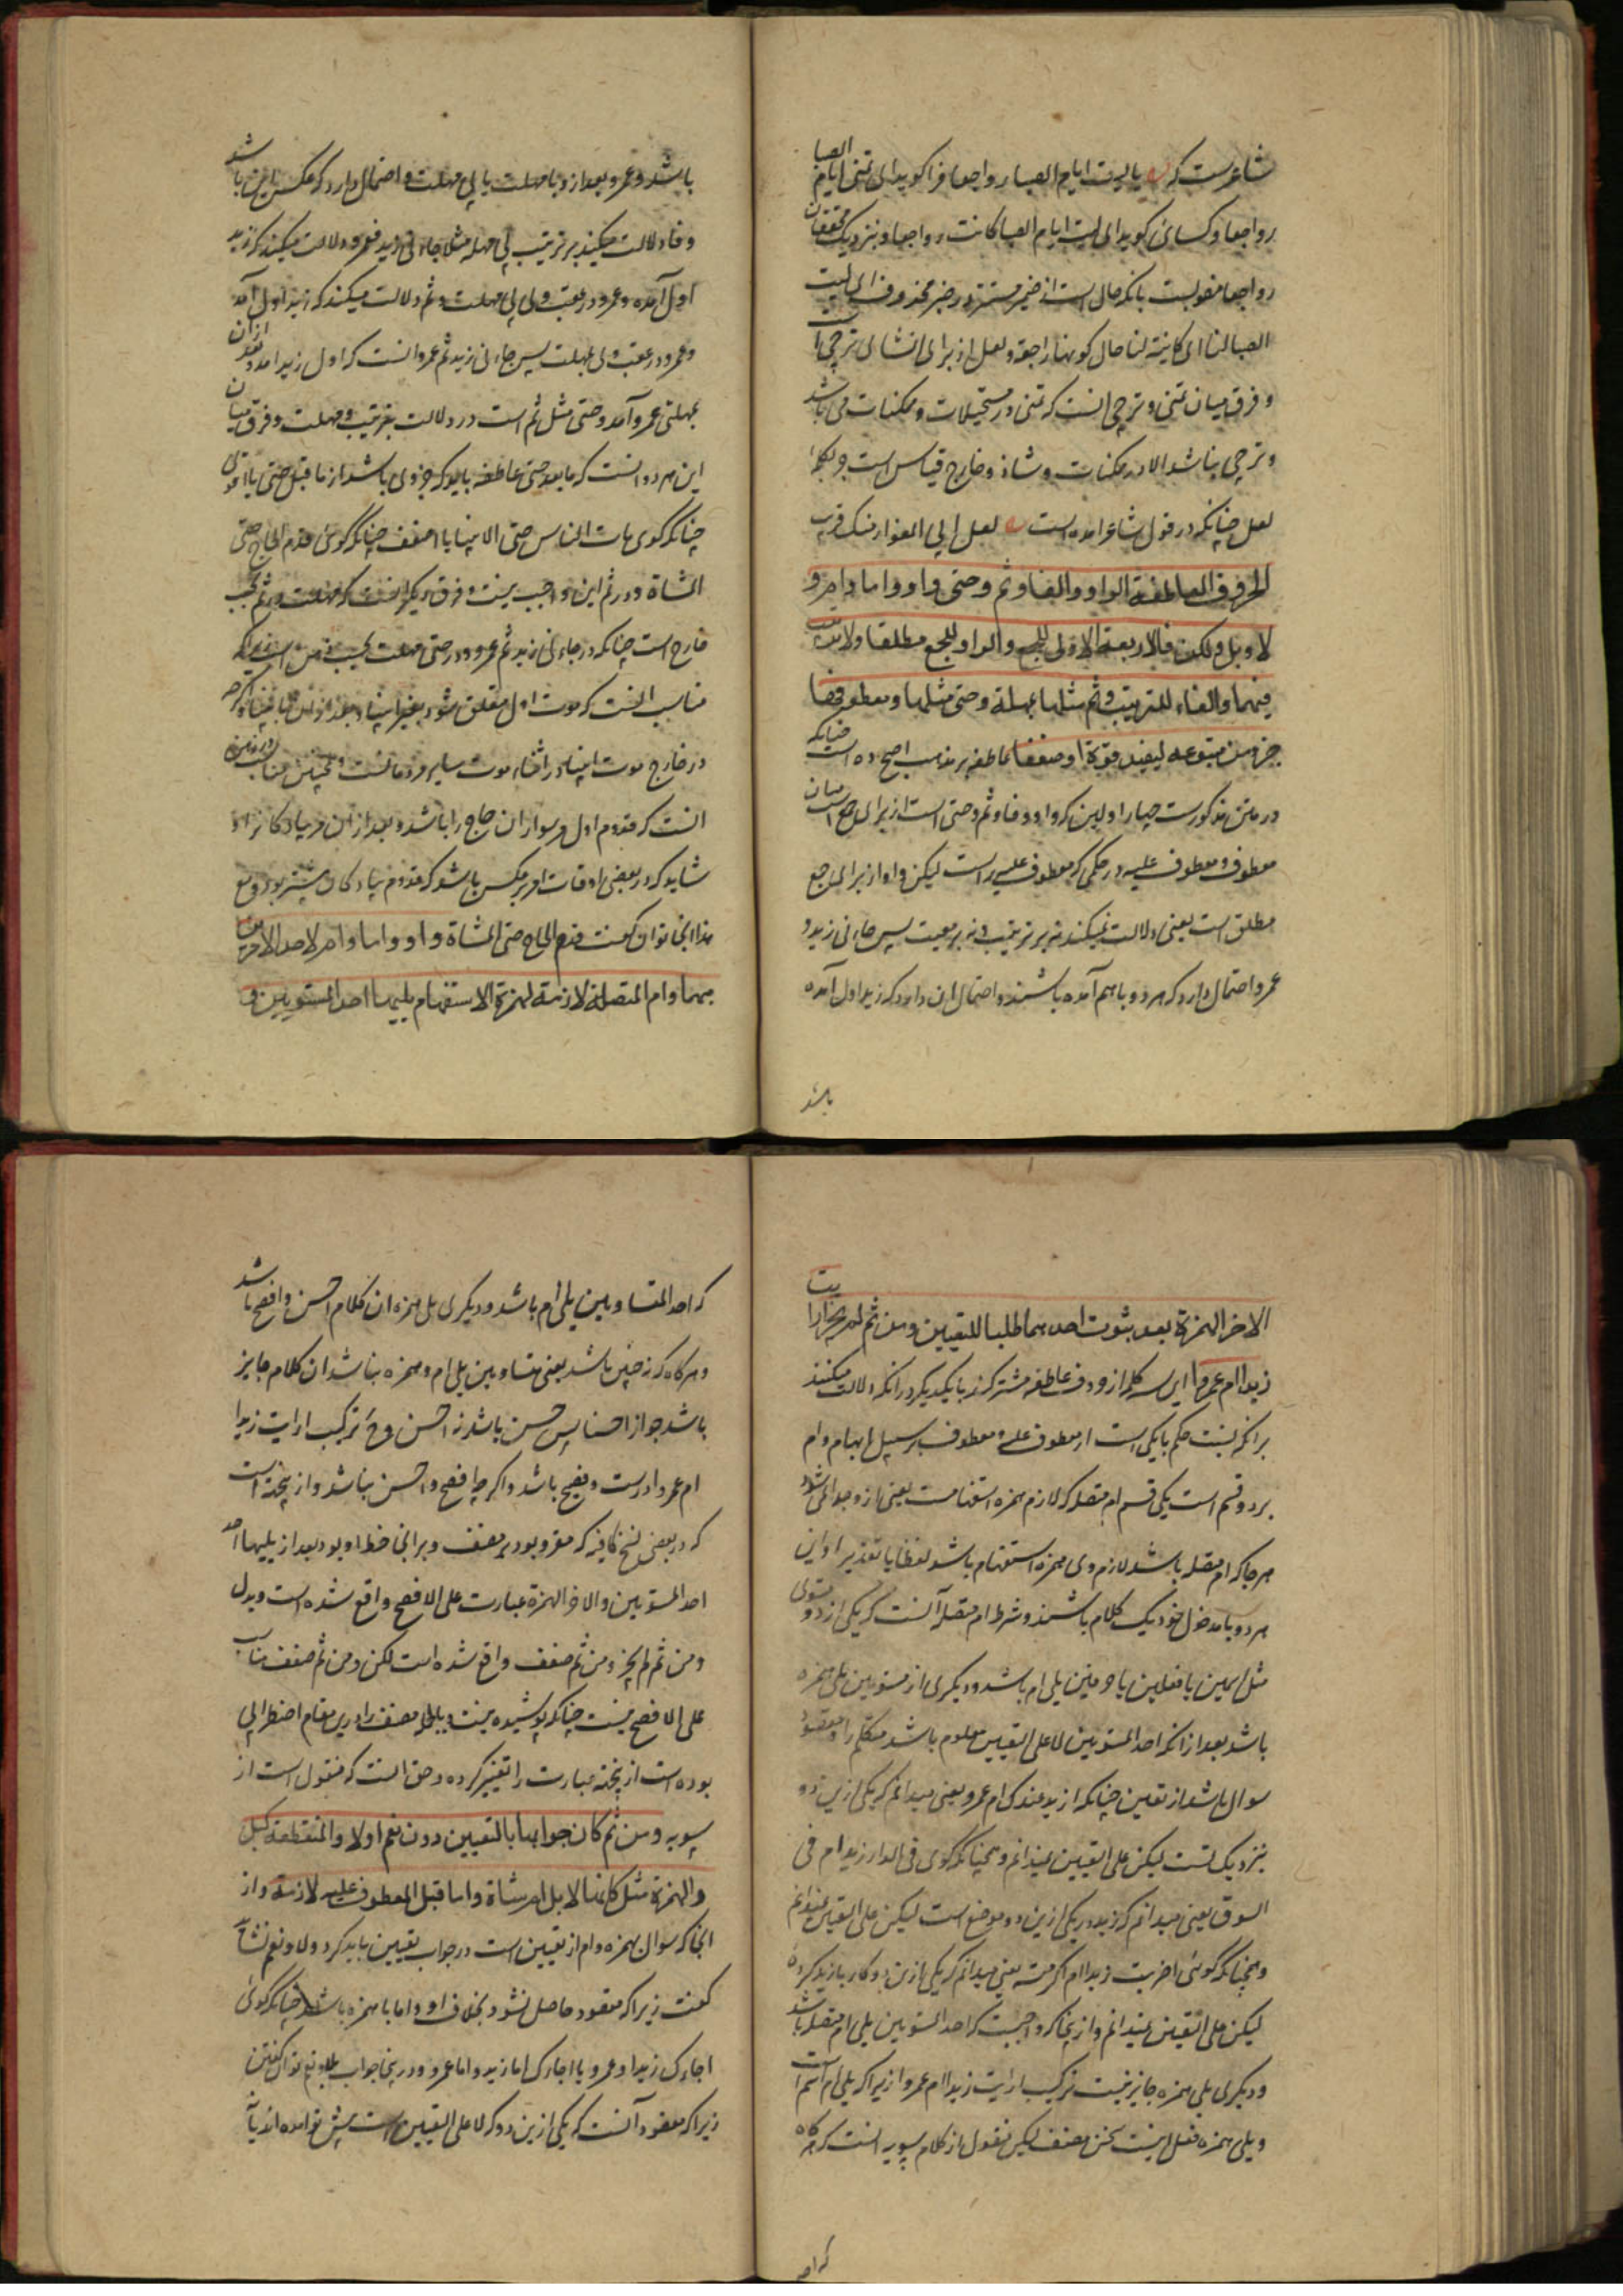 شاعرست که یا لیت ایام الصبا رواجعا فرا کوید ای تمنی ایام الصبا
رواجعا و کسائی کوید ای لیت ایام الصبا کانت رواجعا و نزدیک محققان
رواجعا منصوبست بانکه حال است از ضمیر مستتر در خبر محذوف ای لیت
الصبا لنا ای کاینة لنا حال کونها راجعة و لعل از برای انشای ترجی است
و فرق میان تمنی و ترجی انست که تمنی در مستحیلات و ممکنات می باشد
و ترجی نباشد الا در ممکنات و شاذ و خارج قیاس است جر بکلمه
لعل چنانکه در قول شاعر امده است لعل ابی المغوار منک قریب
الحروف العاطفة الواو والفا وثم وحتی واو واما وام و
لا وبل ولکن فالاربعة الاولی للجمع والواو للجمع مطلقا ولا ترتیب
فیها والفاء للترتیب وثم مثلها بمهلة وحتی مثلها ومعطوفها
جزء من متبوعه لیفید قوة او ضعفا عاطفه بر مذهب اصح ده است چنانکه
در متن مذکورست چهار اولین که واو و فا و ثم و حتی است از برای جمع است میان
معطوف و معطوف علیه در حکمی که معطوف علیه راست لیکن واو از برای جمع
مطلق است یعنی دلالت نمیکند نه بر ترتیب و نه بر معیت پس جاءنی زید و
عمرو احتمال دارد که هر دو با هم آمده باشند و احتمال ان دارد که زید اول آمده
باشد
باشد و عمرو بعد ازو با مهلت یا بی مهلت و احتمال دارد که عکس این باشد
و فا دلالت میکند بر ترتیب بی مهله مثلا جاءنی زید فعمرو دلالت میکند که زید
اول آمده و عمرو در عقب وی بی مهلت و ثم دلالت میکند که زید اول آمد
و عمرو در عقب وی بمهلت پس جاءنی زید ثم عمرو انست که اول زید امد و بعد ازان
بمهلتی عمرو آمد و حتی مثل ثم است در دلالت بترتیب و مهلت و فرق میان
این هر دو انست که مابعد حتی عاطفه باید که جزوی باشد از ماقبل حتی یا اقوی
چنانکه کوی مات الناس حتی الانبیا یا اضعف چنانکه کوئی قدم الحاج حتی
المشاة و در ثم این واجب نیست و فرق دیکر انست که مهلت در ثم بحسب
خارج است چنانکه در جاءنی زید ثم عمرو و در حتی مهلت بحسب ذهن است زیرا که
مناسب انست که موت اول متعلق شود بغیر انبیا و بعد ازان بانبیا و اکرچه
در خارج موت انبیا در اثناء موت سایر مردمانست و همچنین مناسب در ذهن
انست که قدوم اول مر سواران حاج را باشد و بعد ازان مر پیادکانرا و
شاید که در بعضی اوقات امر برعکس باشد که قدوم پیادکان پیشتر بود و مع
هذا انجا توان کفت قدم الحاج حتی المشاة و او واما وام لاحد الامرین
مبهما وام المتصلة لازمة لهمزة الاستفهام یلیها احد المستویین و
الاخر الهمزة بعد ثبوت احدهما طلبا للتعیین ومن ثم لم یجز ارایت
زیدا ام عمروا این سه کلمه از حروف عاطفه مشترکند با یکدیکر در انکه دلالت میکنند
بر انکه نسبت حکم با یکی است از معطوف علیه و معطوف بر سبیل ابهام و ام
بر دو قسم است یکی قسم ام متصله که لازم همزه استفهامست یعنی ازو جدا نمی شود
هر جا که ام متصله باشد لازم وی همزه استفهام باشد لفظا یا تقدیرا و این
هر دو با مدخول خود یک کلام باشند و شرط ام متصله آنست که یکی از دو مستوی
مثل اسمین یا فعلین یا حرفین یلی ام باشد و دیکری از مستویین یلی همزه
باشد بعد از انکه احد المستویین لا علی التعیین معلوم باشد متکلم را و مقصود
سوال باشد از تعیین چنانکه ازید عندک ام عمرو یعنی میدانم که یکی ازین دو
بنزدیک تست لیکن علی التعیین نمیدانم و همچنانکه کوی فی الدار زید ام فی
السوق یعنی میدانم که زید در یکی ازین دو موضع است لیکن علی التعیین نمیدانم
و همچنانکه کوئی اضربت زیدا ام اکرمته یعنی میدانم که یکی ازین دو کار با زید کردهٔ
لیکن علی التعیین نمیدانم و از ینجا که واجبست که احد المستویین یلی ام متصله باشد
و دیکری یلی همزه جایز نیست ترکیب ارایت زیدا ام عمروا زیرا که یلی ام اسم است
و یلی همزه فعل اینست سخن مصنف لیکن منقول از کلام سیبویه انست که هرکاه
که احد
که احد المتساویین یلی ام باشد و دیکری یلی همزه ان کلام احسن و افصح باشد
و هرکاه که نه چنین باشد یعنی متساویین یلی ام و همزه نباشد ان کلام جایز
باشد جواز احسنا پس حسن باشد نه احسن و ترکیب ارایت زیدا
ام عمروا درست و فصیح باشد و اکرچه افصح و احسن نباشد و از ینجهت است
که در بعضی نسخ کافیه که مقرو بود بر مصنف و بر انجا خط او بود بعد از یلیها احد
احد المستویین والاخر الهمزة عبارت علی الافصح واقع شده است و بدل
ومن ثم لم یجز ومن ثم ضعف واقع شده است لکن ومن ثم ضعف مناسب
علی الافصح نیست چنانکه پوشیده نیست و بالجمله مصنف را درین مقام اضطرابی
بوده است از ینجهة عبارت را تغییر کرده و حق انست که منقول است از
سیبویه ومن ثم کان جوابها بالتعیین دون نعم اولا والمنقطعة کبل
والهمزة مثل کانها لابل ام شاة واما قبل المعطوف علیه لازمة و از
انجا که سوال بهمزه و ام از تعیین است در جواب تعیین باید کرد و لا و نعم نشاید
کفت زیرا که مقصود حاصل نشود بخلاف او و اما با همزه باشد چنانکه کوئی
اجاءک زید او عمرو یا اجاءک اما زید و اما عمرو و درینجا جواب بلا و نعم توان کفتن
زیرا که مقصود آنست که یکی ازین دو که لا علی التعیین است پیش تو امده اند یا نه